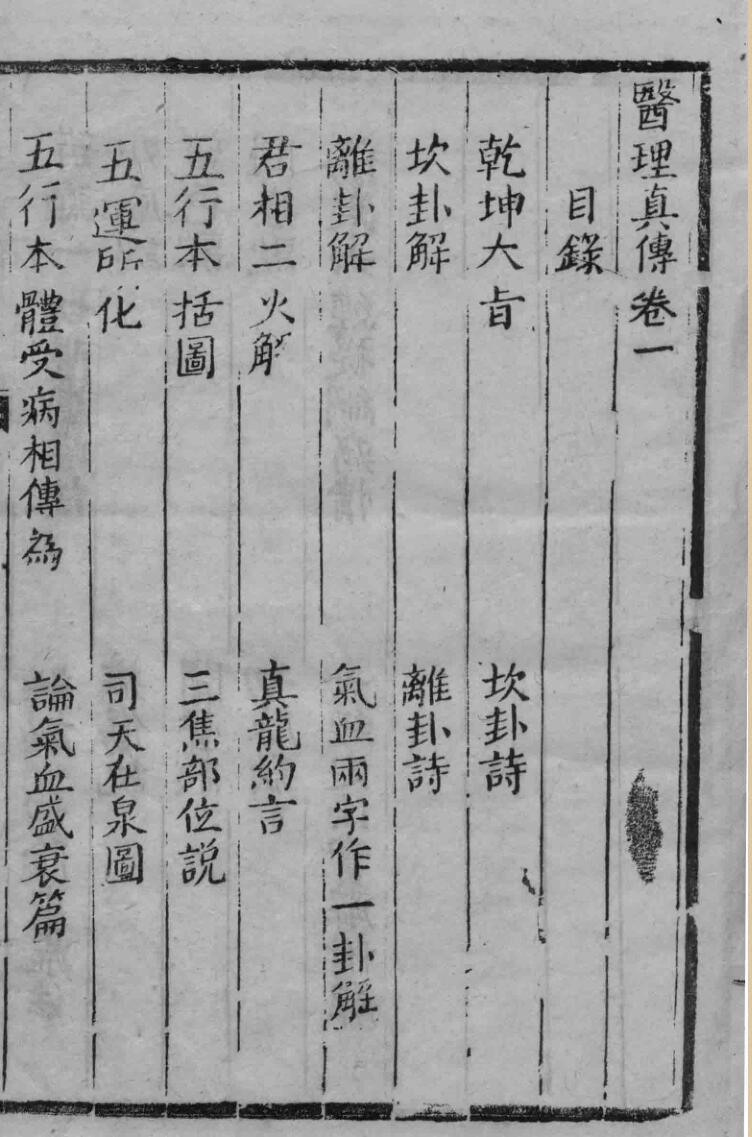 醫理真傳卷一
目錄
乾坤大旨 坎卦詩
坎卦解 離卦詩
離卦解 氣血兩字作一卦解
君相二火解 真龍約言
五行本括圖 三焦部位說
五運所化 司天在泉圖
五行本體受病相傳為 論氣血盛衰篇